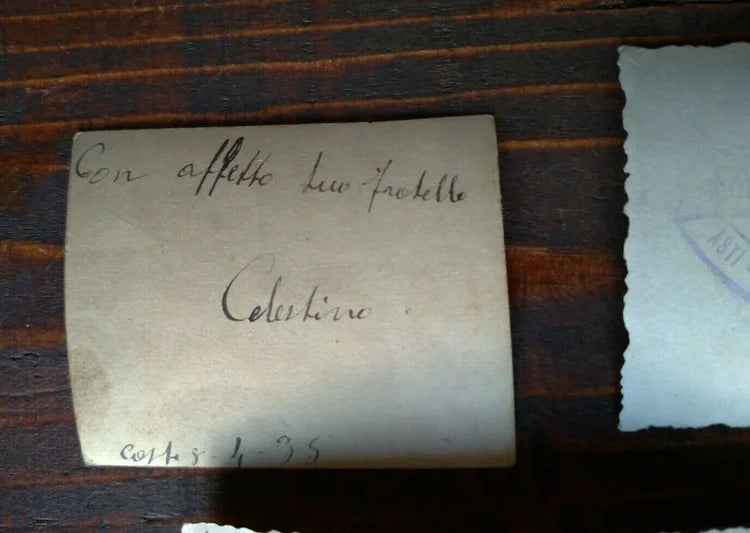 Con affetto tuo fratello
Celestino.
8-4-35
ASTI